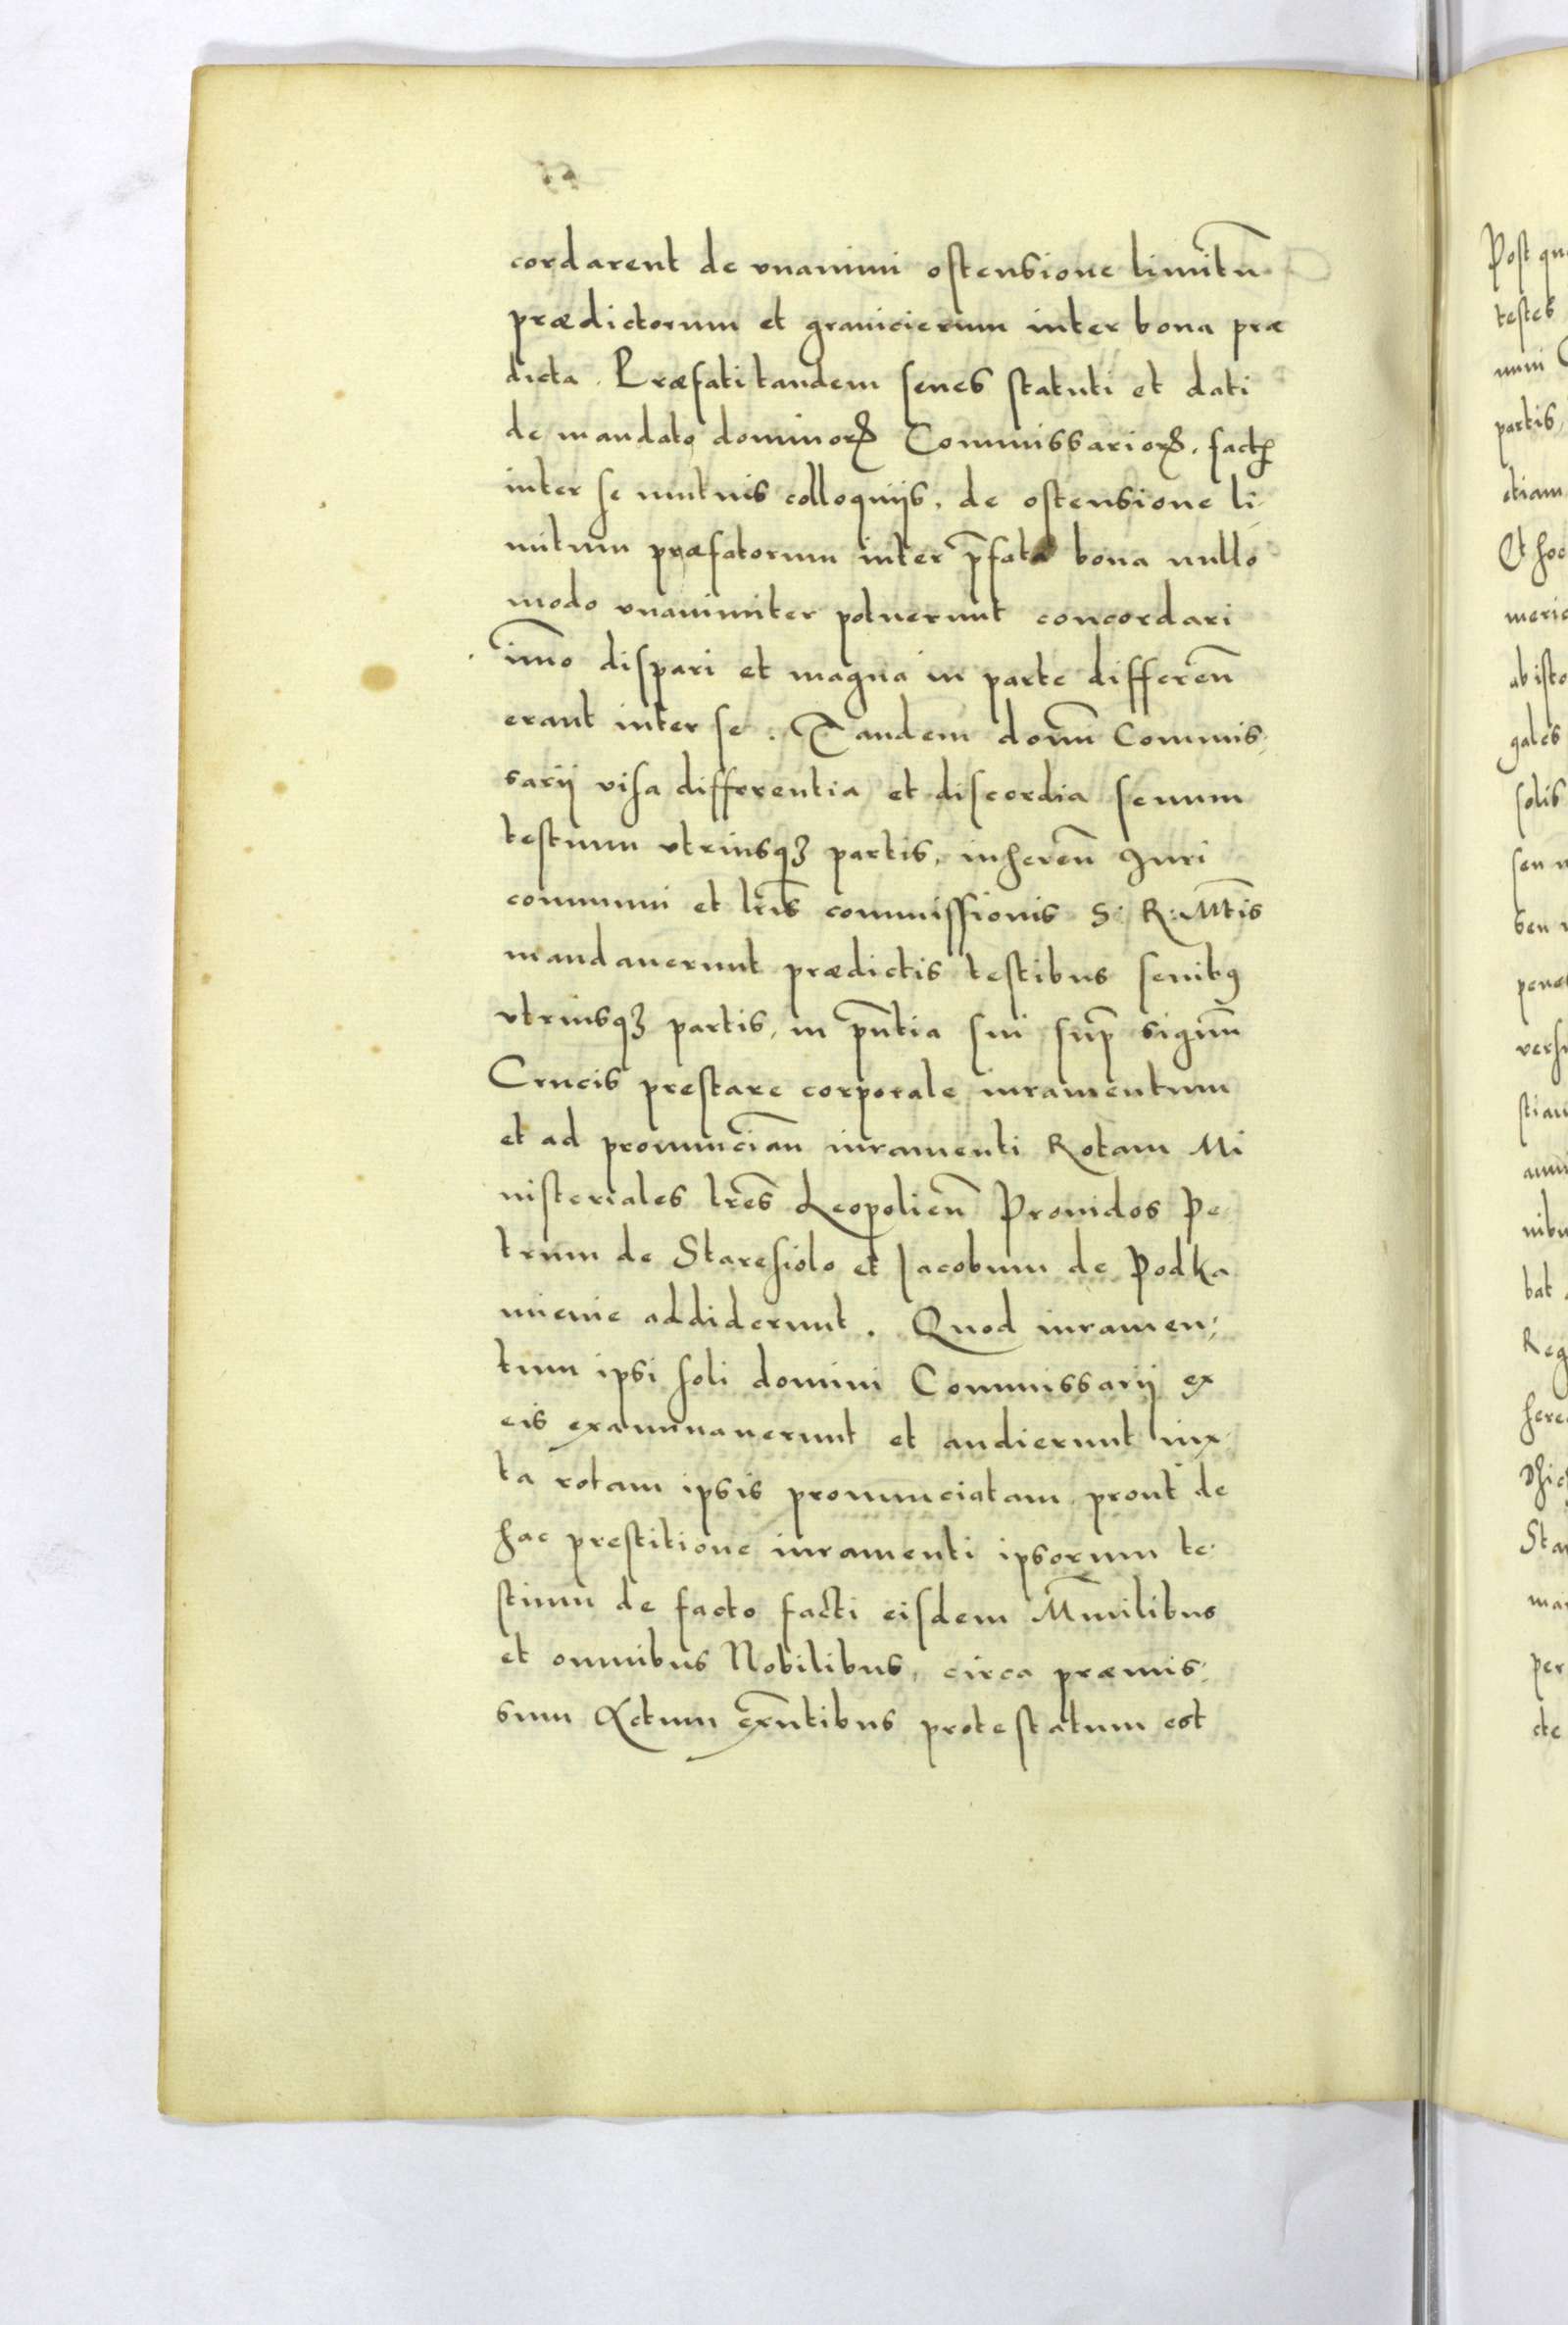 cordarent de vnanimi ostensione limitũ
prædictorum et granicierum inter bona præ
dicta. Præfati tandem senes statuti et dati
de mandato dominorꝝ Commissariorꝝ. factꝭ
inter se mutuis colloquijs, de ostensione li-
mitum præfatorum inter p̃fata bona nullo
modo vnanimiter potuerunt concordari
im̃o dispari et magna in parte differeñ
erant inter se. Tandem dom̃i Commis-
sarij visa differentia et discordia senum
testium vtriusqꝫ partis, inhereñ Iuri
communi et lr̃is commissionis S: R: Mt̃is
mandauerunt prædictis testibus senibꝰ
vtriusqꝫ partis, in p̃ntia sui sup̃ signũm
Crucis prestare corporale iuramentum
et ad pronuncian̄ iuramenti Rotam Mi
nisteriales tr̃es Leopolieñ Prouidos Pe
trum de Staresiolo et Jacobum de Podka
mienie addiderunt. Quod iuramen-
tum ipsi soli domini Commissarij ex
eis examinauerunt et audierunt iux-
ta rotam ipsis pronunciatam, prout de
hac prestitione iuramenti ipsorum te-
stium de facto facti eisdem Mĩnilibus
et omnibus Nobilibus, circa præmis-
sum Actum ex̃ntibus protestatum est
Post qu
testes
num
partis
etiam
Et hoc
meric
ab isto
gales
solis
seu
seu
pene
vers
stian
anni
nibu
bat
Reg
here
Sta
man
per
cte